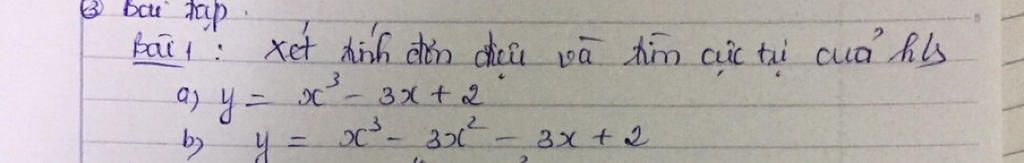 ③ Bài tập.
Bài 1 : Xét tính đơn điệu và tìm cực trị của h/s
a) y = x³ - 3x + 2
b) y = x³ - 3x² - 3x + 2